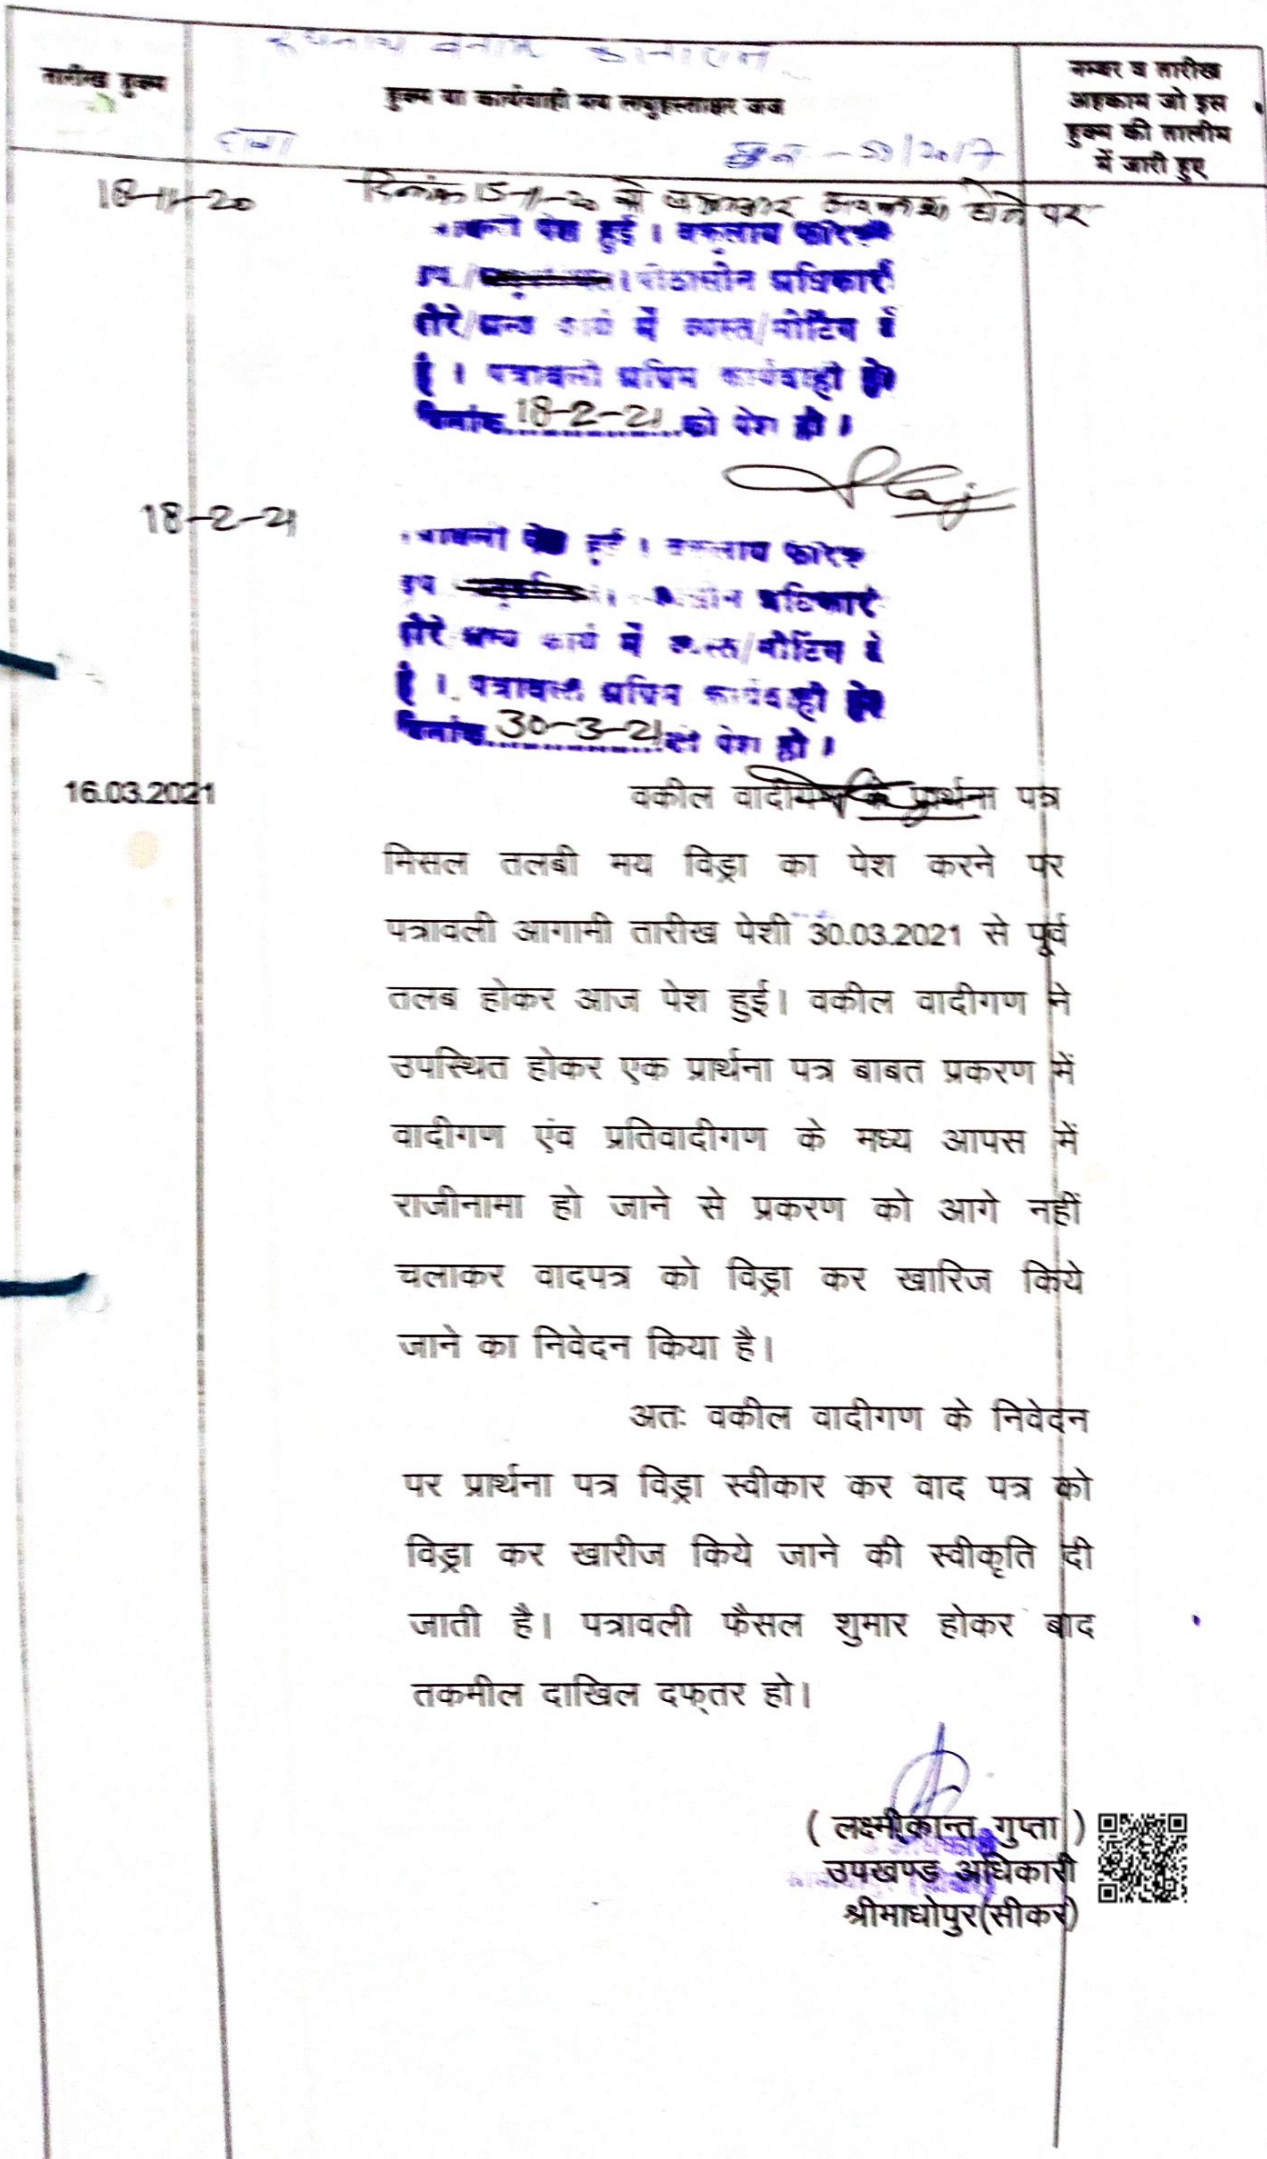 तारीख हुक्म
हुक्म या कार्यवाही मय लघुहस्ताक्षर जज
नम्बर व तारीख
अहकाम जो इस
हुक्म की तालीम
में जारी हुए
बनाम
/2017
18-11-20
दिनांक 15-11-20 को अवकाश होने पर
पेश हुई । वकुलाय
प्रधिकारी
दौरे/अन्य कार्य में व्यस्त/मीटिंग में
है । पत्रावली अग्रिम कार्यवाही हेतु
दिनांक 18-2-21 को पेश हो ।
18-2-21
पेश हुई । वकुलाय
दौरे अन्य कार्य में व्यस्त/मीटिंग में
है । पत्रावली अग्रिम कार्यवाही हेतु
दिनांक 30-3-21 को पेश हो ।
16.03.2021
वकील वादीगण के प्रार्थना पत्र
मिसल तलबी मय विड्रा का पेश करने पर
पत्रावली आगामी तारीख पेशी 30.03.2021 से पूर्व
तलब होकर आज पेश हुई। वकील वादीगण ने
उपस्थित होकर एक प्रार्थना पत्र बाबत प्रकरण में
वादीगण एंव प्रतिवादीगण के मध्य आपस में
राजीनामा हो जाने से प्रकरण को आगे नहीं
चलाकर वादपत्र को विड्रा कर खारिज किये
जाने का निवेदन किया है।
अतः वकील वादीगण के निवेदन
पर प्रार्थना पत्र विड्रा स्वीकार कर वाद पत्र को
विड्रा कर खारीज किये जाने की स्वीकृति दी
जाती है। पत्रावली फैसल शुमार होकर बाद
तकमील दाखिल दफ्तर हो।
( लक्ष्मीकान्त गुप्ता )
उपखण्ड अधिकारी
श्रीमाधोपुर(सीकर)